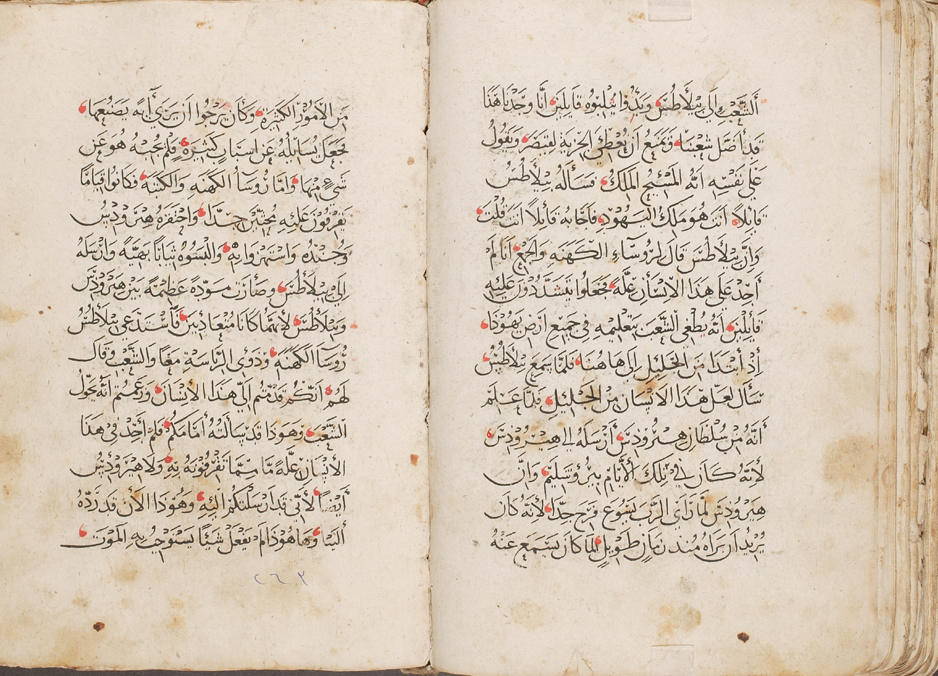 الشعب الى بيلاطس وبدوا يثلبوه قايلين انا وجدنا هذا
قد اضل شعبنا ويمنع ان يعطى الجزية لقيصر ويقول
على نفسه انه المسيح الملك فساله بيلاطس
قايلا انت هو ملك اليهود فاجابه قايلا انت قلت
وان بيلاطس قال لروساء الكهنه والجمع انا لم
اجد على هذا الانسان علة فجعلوا يتشددون عليه
قايلين انه يطغي الشعب بتعليمه في جميع ارض يهودا
اذ ابتدا من الجليل الى هاهنا فلما سمع بيلاطس
سال لعل هذا الانسان من الجليل فلما علم
انه من سلطان هيرودس ارسله الى هيرودس
لانه كان في تلك الايام بيروشليم وان
هيرودس لما راى الرب يسوع فرح جدا لانه كان
يريد ان يراه منذ زمان طويل لما كان يستمع عنه
من الامور الكثيرة وكان يرجوا ان يرى اية يصنعها
فجعل يسايله عن اسباب كثيرة فلم يجبه هو عن
شي منها واما روسا الكهنه والكتبه فكانوا قياما
يقرفون عليه مجتهدين جدا واحتقره هيرودس
وجنده واستهزوا به والبسوه ثيابا بهية وارسله
الى بيلاطس وصارت مودة عظيمة بين هيرودس
وبيلاطس لانهما كانا متعاديين فاستدعى بيلاطس
روسا الكهنه وذوى الرياسة معا والشعب وقال
لهم انكم قدمتم الي هذا الانسان وزعمتم انه يحول
الشعب وهوذا قد سالته امامكم فلم اجد في هذا
الانسان علة مما تقرفونه به ولا هيرودس
ايضا لانى قد ارسلتكم اليه وهوذا الان قد رده
الينا وها هوذا لم يفعل شيئا يستوجب به الموت